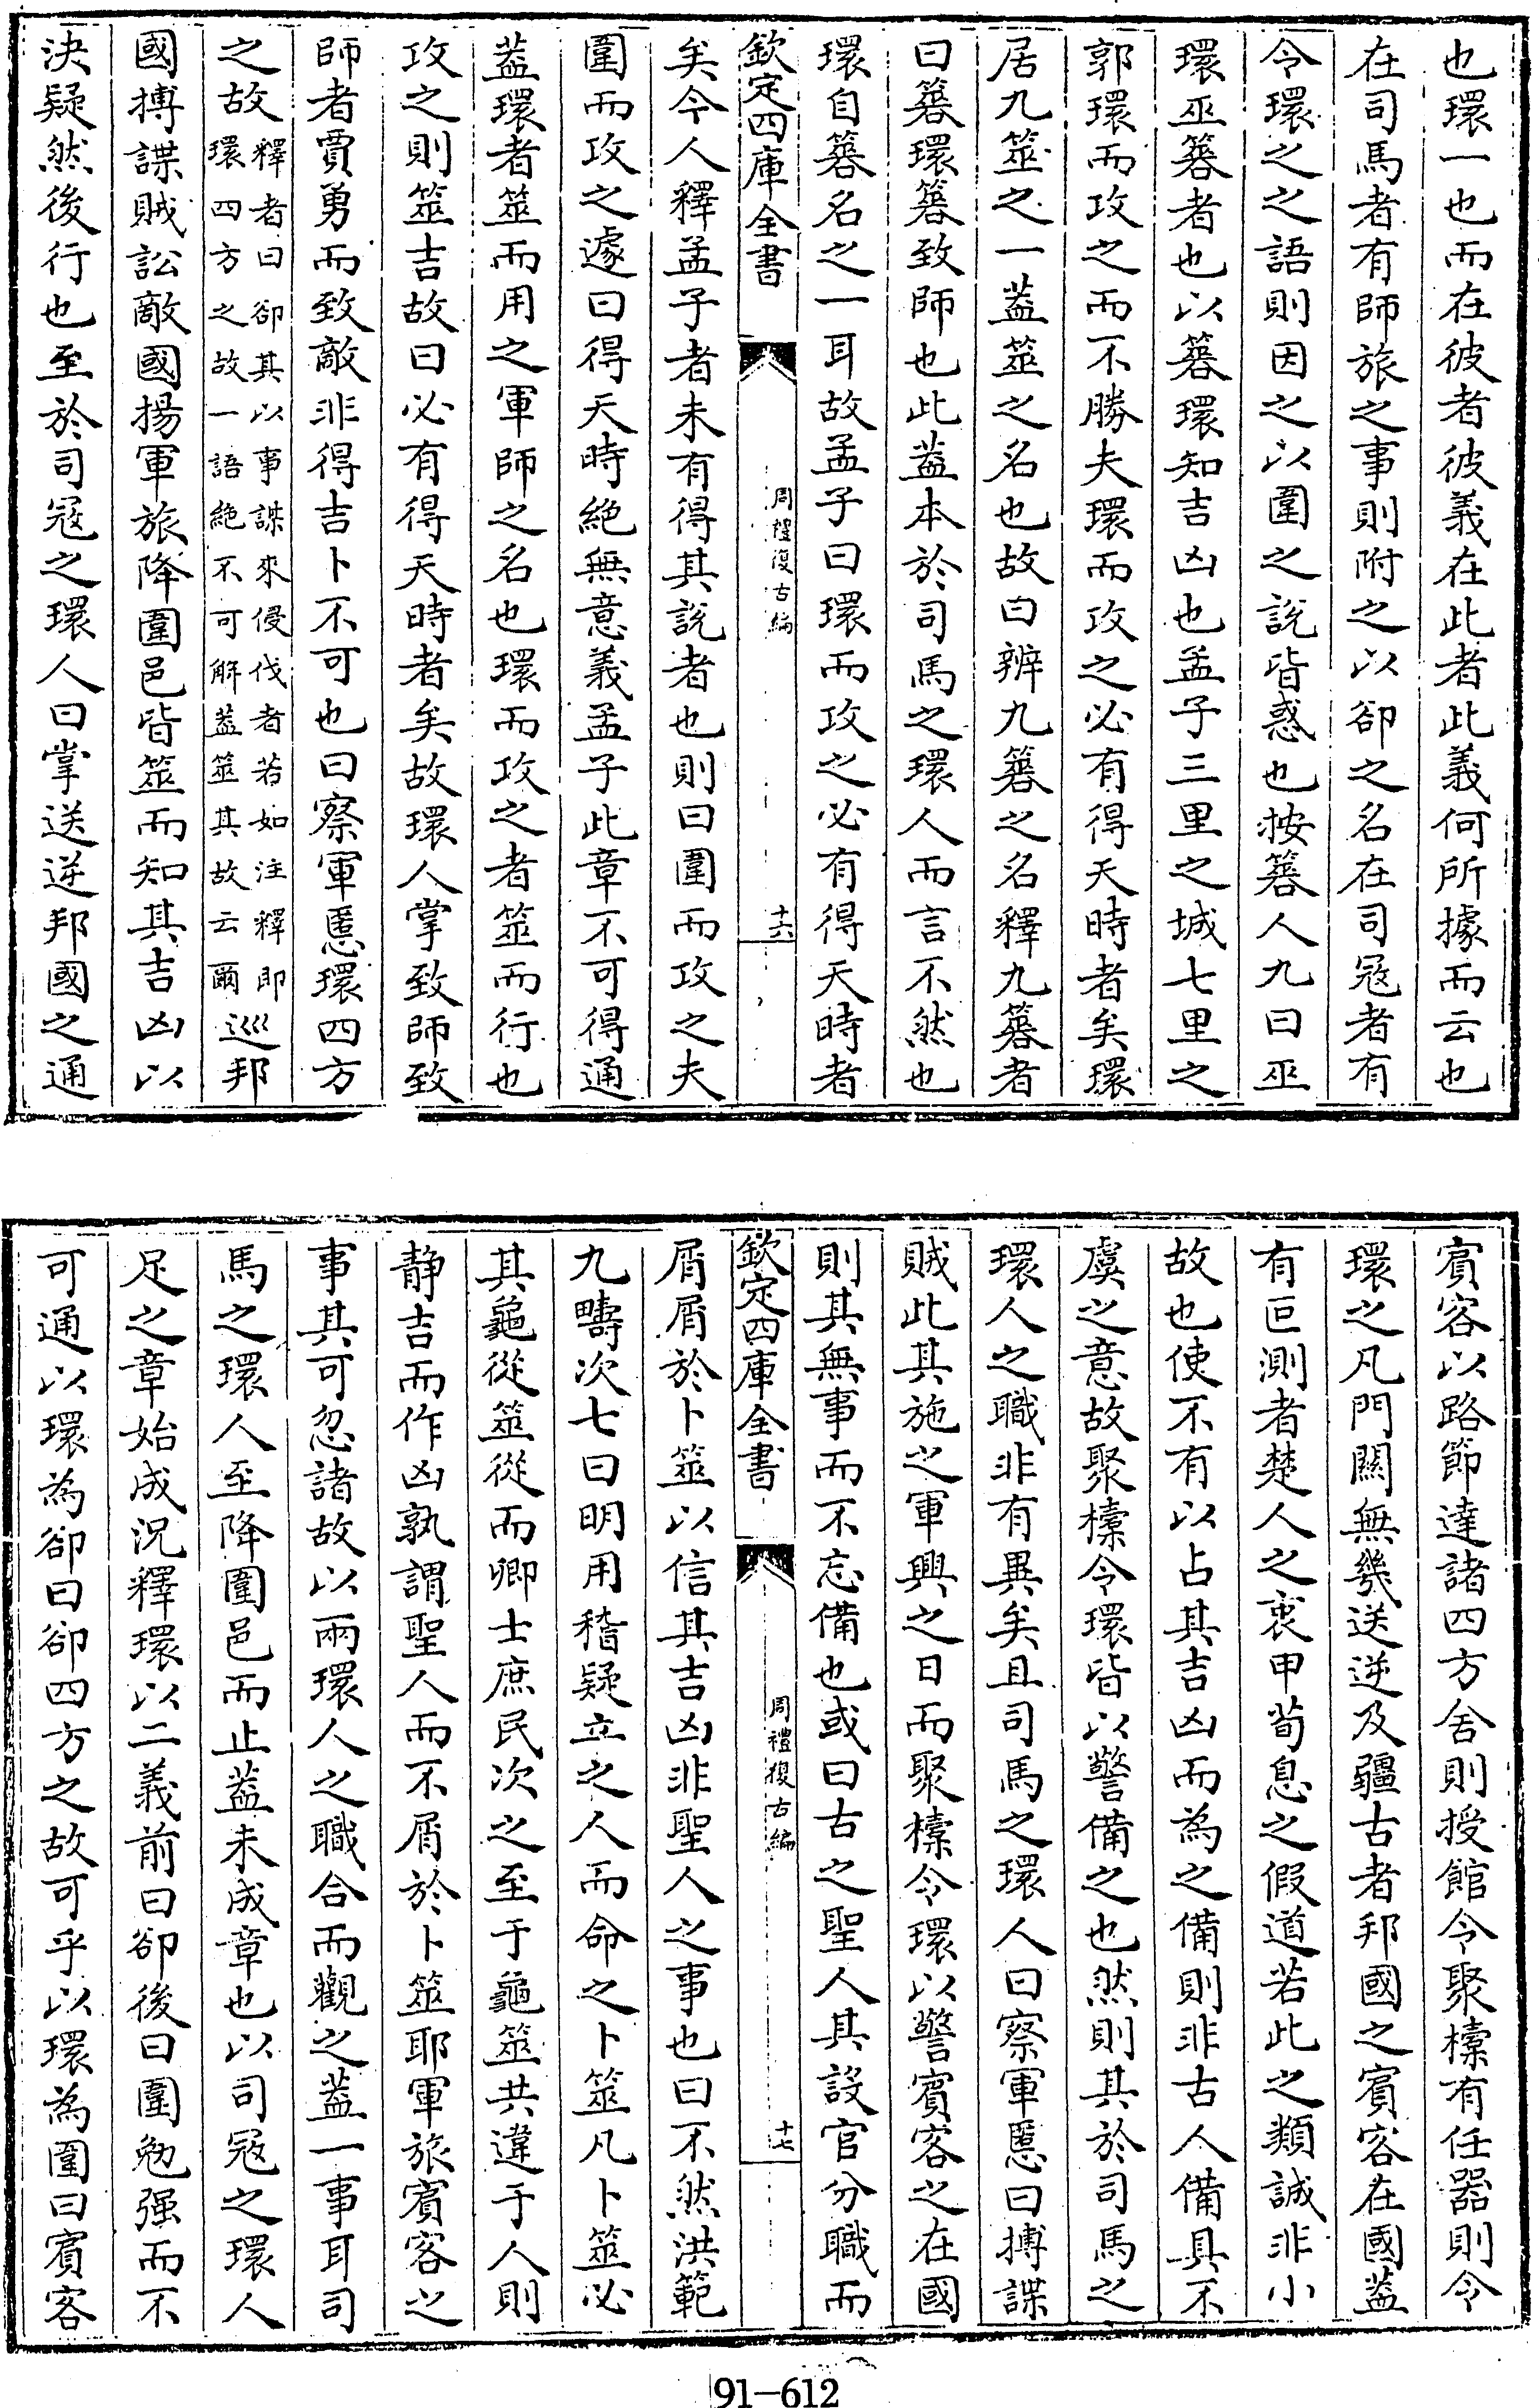 也環一也而在彼者彼義在此者此義何所據而云也
在司馬者有師旅之事則附之以卻之名在司冦者有
令環之之語則因之以圍之説皆惑也按簭人九曰巫
環巫簭者也以簭環知吉凶也孟子三里之城七里之
郭環而攻之而不勝夫環而攻之必有得天時者矣環
居九筮之一葢筮之名也故曰辨九簭之名釋九簭者
曰簭環簭致師也此葢本於司馬之環人而言不然也
環自簭名之一耳故孟子曰環而攻之必有得天時者
欽定四庫全書
周禮復古編
十六
矣今人釋孟子者未有得其説者也則曰圍而攻之夫
圍而攻之遽曰得天時絶無意義孟子此章不可得通
葢環者筮而用之軍師之名也環而攻之者筮而行也
攻之則筮吉故曰必有得天時者矣故環人掌致師致
師者賈勇而致敵非得吉卜不可也曰察軍慝環四方
之故釋者曰卻其以事謀來侵伐者若如注釋即環四方之故一語絶不可解葢筮其故云爾巡邦
國搏諜賊訟敵國揚軍旅降圍邑皆筮而知其吉凶以
決疑然後行也至於司冦之環人曰掌送逆邦國之通
賓客以路節達諸四方舍則授館令聚㯓有任器則令
環之凡門關無幾送逆及疆古者邦國之賓客在國葢
有叵測者楚人之衷甲荀息之假道若此之類誠非小
故也使不有以占其吉凶而為之備則非古人備具不
虞之意故聚㯓令環皆以警備之也然則其於司馬之
環人之職非有異矣且司馬之環人曰察軍慝曰搏諜
賊此其施之軍興之日而聚㯓令環以警賓客之在國
則其無事而不忘備也或曰古之聖人其設官分職而
欽定四庫全書
周禮復古編
十七
屑屑於卜筮以信其吉凶非聖人之事也曰不然洪範
九疇次七曰明用稽疑立之人而命之卜筮凡卜筮必
其龜從筮從而卿士庶民次之至于龜筮共違于人則
静吉而作凶孰謂聖人而不屑於卜筮耶軍旅賓客之
事其可忽諸故以兩環人之職合而觀之葢一事耳司
馬之環人至降圍邑而止葢未成章也以司冦之環人
足之章始成況釋環以二義前曰卻後曰圍勉强而不
可通以環為卻曰卻四方之故可乎以環為圍曰賓客
91-612